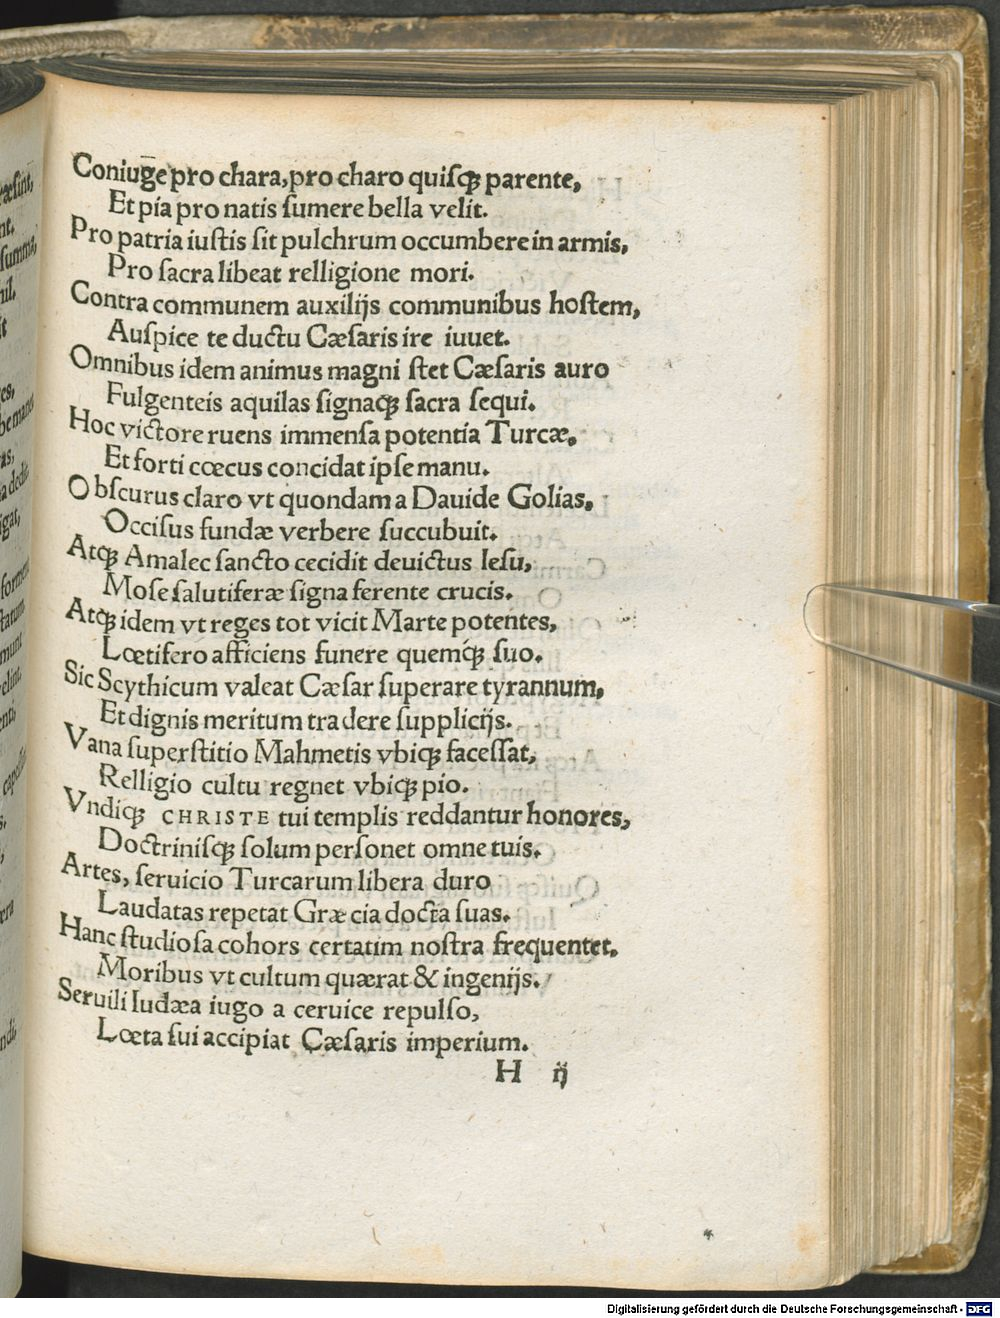 Coniuge pro chara, pro charo quisq; parente,
Et pia pro natis sumere bella velit.
Pro patria iustis sit pulchrum occumbere in armis,
Pro sacra libeat relligione mori.
Contra communem auxilijs communibus hostem,
Auspice te ductu Cæsaris ire iuuet.
Omnibus idem animus magni stet Cæsaris auro
Fulgenteis aquilas signaq; sacra sequi.
Hoc victore ruens immensa potentia Turcæ,
Et forti cœcus concidat ipse manu.
Obscurus claro vt quondam a Dauide Golias,
Occisus fundæ verbere succubuit.
Atq; Amalec sancto cecidit deuictus Iesu,
Mose salutiferæ signa ferente crucis.
Atq; idem vt reges tot vicit Marte potentes,
Lœtifero afficiens funere quemq́; suo.
Sic Scythicum valeat Cæsar superare tyrannum,
Et dignis meritum tradere supplicijs.
Vana superstitio Mahmetis vbiq; facessat,
Relligio cultu regnet vbiq; pio.
Vndiq; CHRISTE tui templis reddantur honores,
Doctrinisq; solum personet omne tuis.
Artes, seruicio Turcarum libera duro
Laudatas repetat Græcia docta suas.
Hanc studiosa cohors certatim nostra frequentet,
Moribus vt cultum quærat & ingenijs.
Seruili Iudæa iugo a ceruice repulso,
Lœta sui accipiat Cæsaris imperium.
H ij
Digitalisierung gefördert durch die Deutsche Forschungsgemeinschaft - DFG